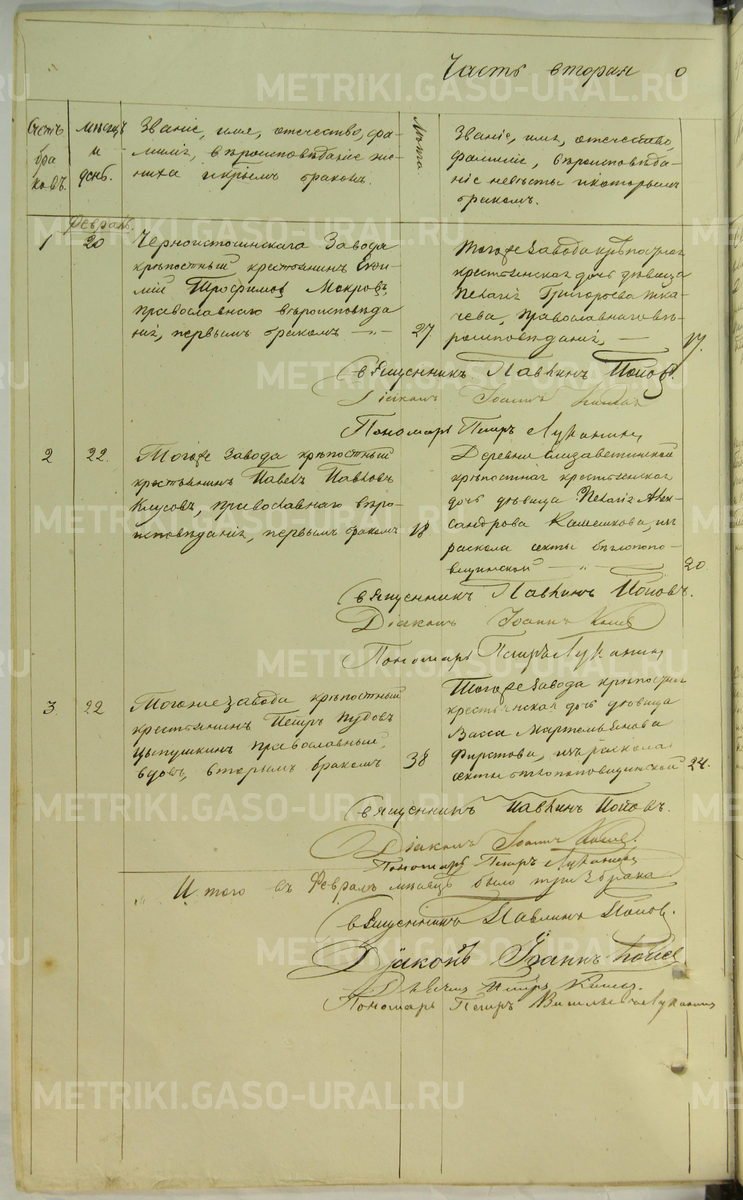 Часть вторая о
Счетъ браковъ.
Мѣсяцъ и день.
Званіе, имя, отчество, фа-
миліи, вѣроисповѣданіе же-
ниха и кѣимъ бракомъ.
Лѣта
Званіе, имя, отчество,
фамиліи, вѣроисповѣда-
ніе невѣсты и которымъ
бракомъ.
Февраль.
1 20
Черноистошинскаго Завода
крѣпостный крестьянинъ Евѳи-
мій Трофимовъ Мокровъ,
православнаго вѣроисповѣда
нія, первымъ бракомъ — 27
Тогоже Завода крѣпостная
крестьянская дочь дѣвица
Пелагія Григорьева Тка-
чева, православнаго вѣ-
роисповѣданія, — 17.
Священникъ Павлинъ Поповъ.
Діаконъ Іоаннъ
Пономарь Петръ Луканинъ
2 22.
Тогоже Завода крѣпостный
крестьянинъ Павелъ Павловъ
Клусовъ, православнаго вѣро-
исповѣданія, первымъ бракомъ 18
Деревни Елизаветинской
крѣпостная крестьянская
дочь дѣвица Пелагія Алек-
сандрова Кашешкова, изъ
раскола секты бѣглопопо-
вщинской — 20.
Священникъ Павлинъ Поповъ.
Діаконъ Іоаннъ
Пономарь Петръ Луканинъ
3. 22
Тогоже завода крѣпостный
крестьянинъ Петръ Пудовъ
Цыпушкинъ православный,
вдовъ, вторымъ бракомъ 38
Тогоже Завода крѣпостная
крестьянская дочь дѣвица
Васса Мартемьянова
Фирстова, изъ раскола
секты бѣглопоповщинской 24.
Священникъ Павлинъ Поповъ.
Діаконъ Іоаннъ
Пономарь Петръ Луканинъ
Итого въ Февралѣ мѣсяцѣ было три 3 брака
Священникъ Павлинъ Поповъ.
Діаконъ Іоаннъ
Петръ
Пономарь Петръ Луканинъ
METRIKI.GASO-URAL.RU